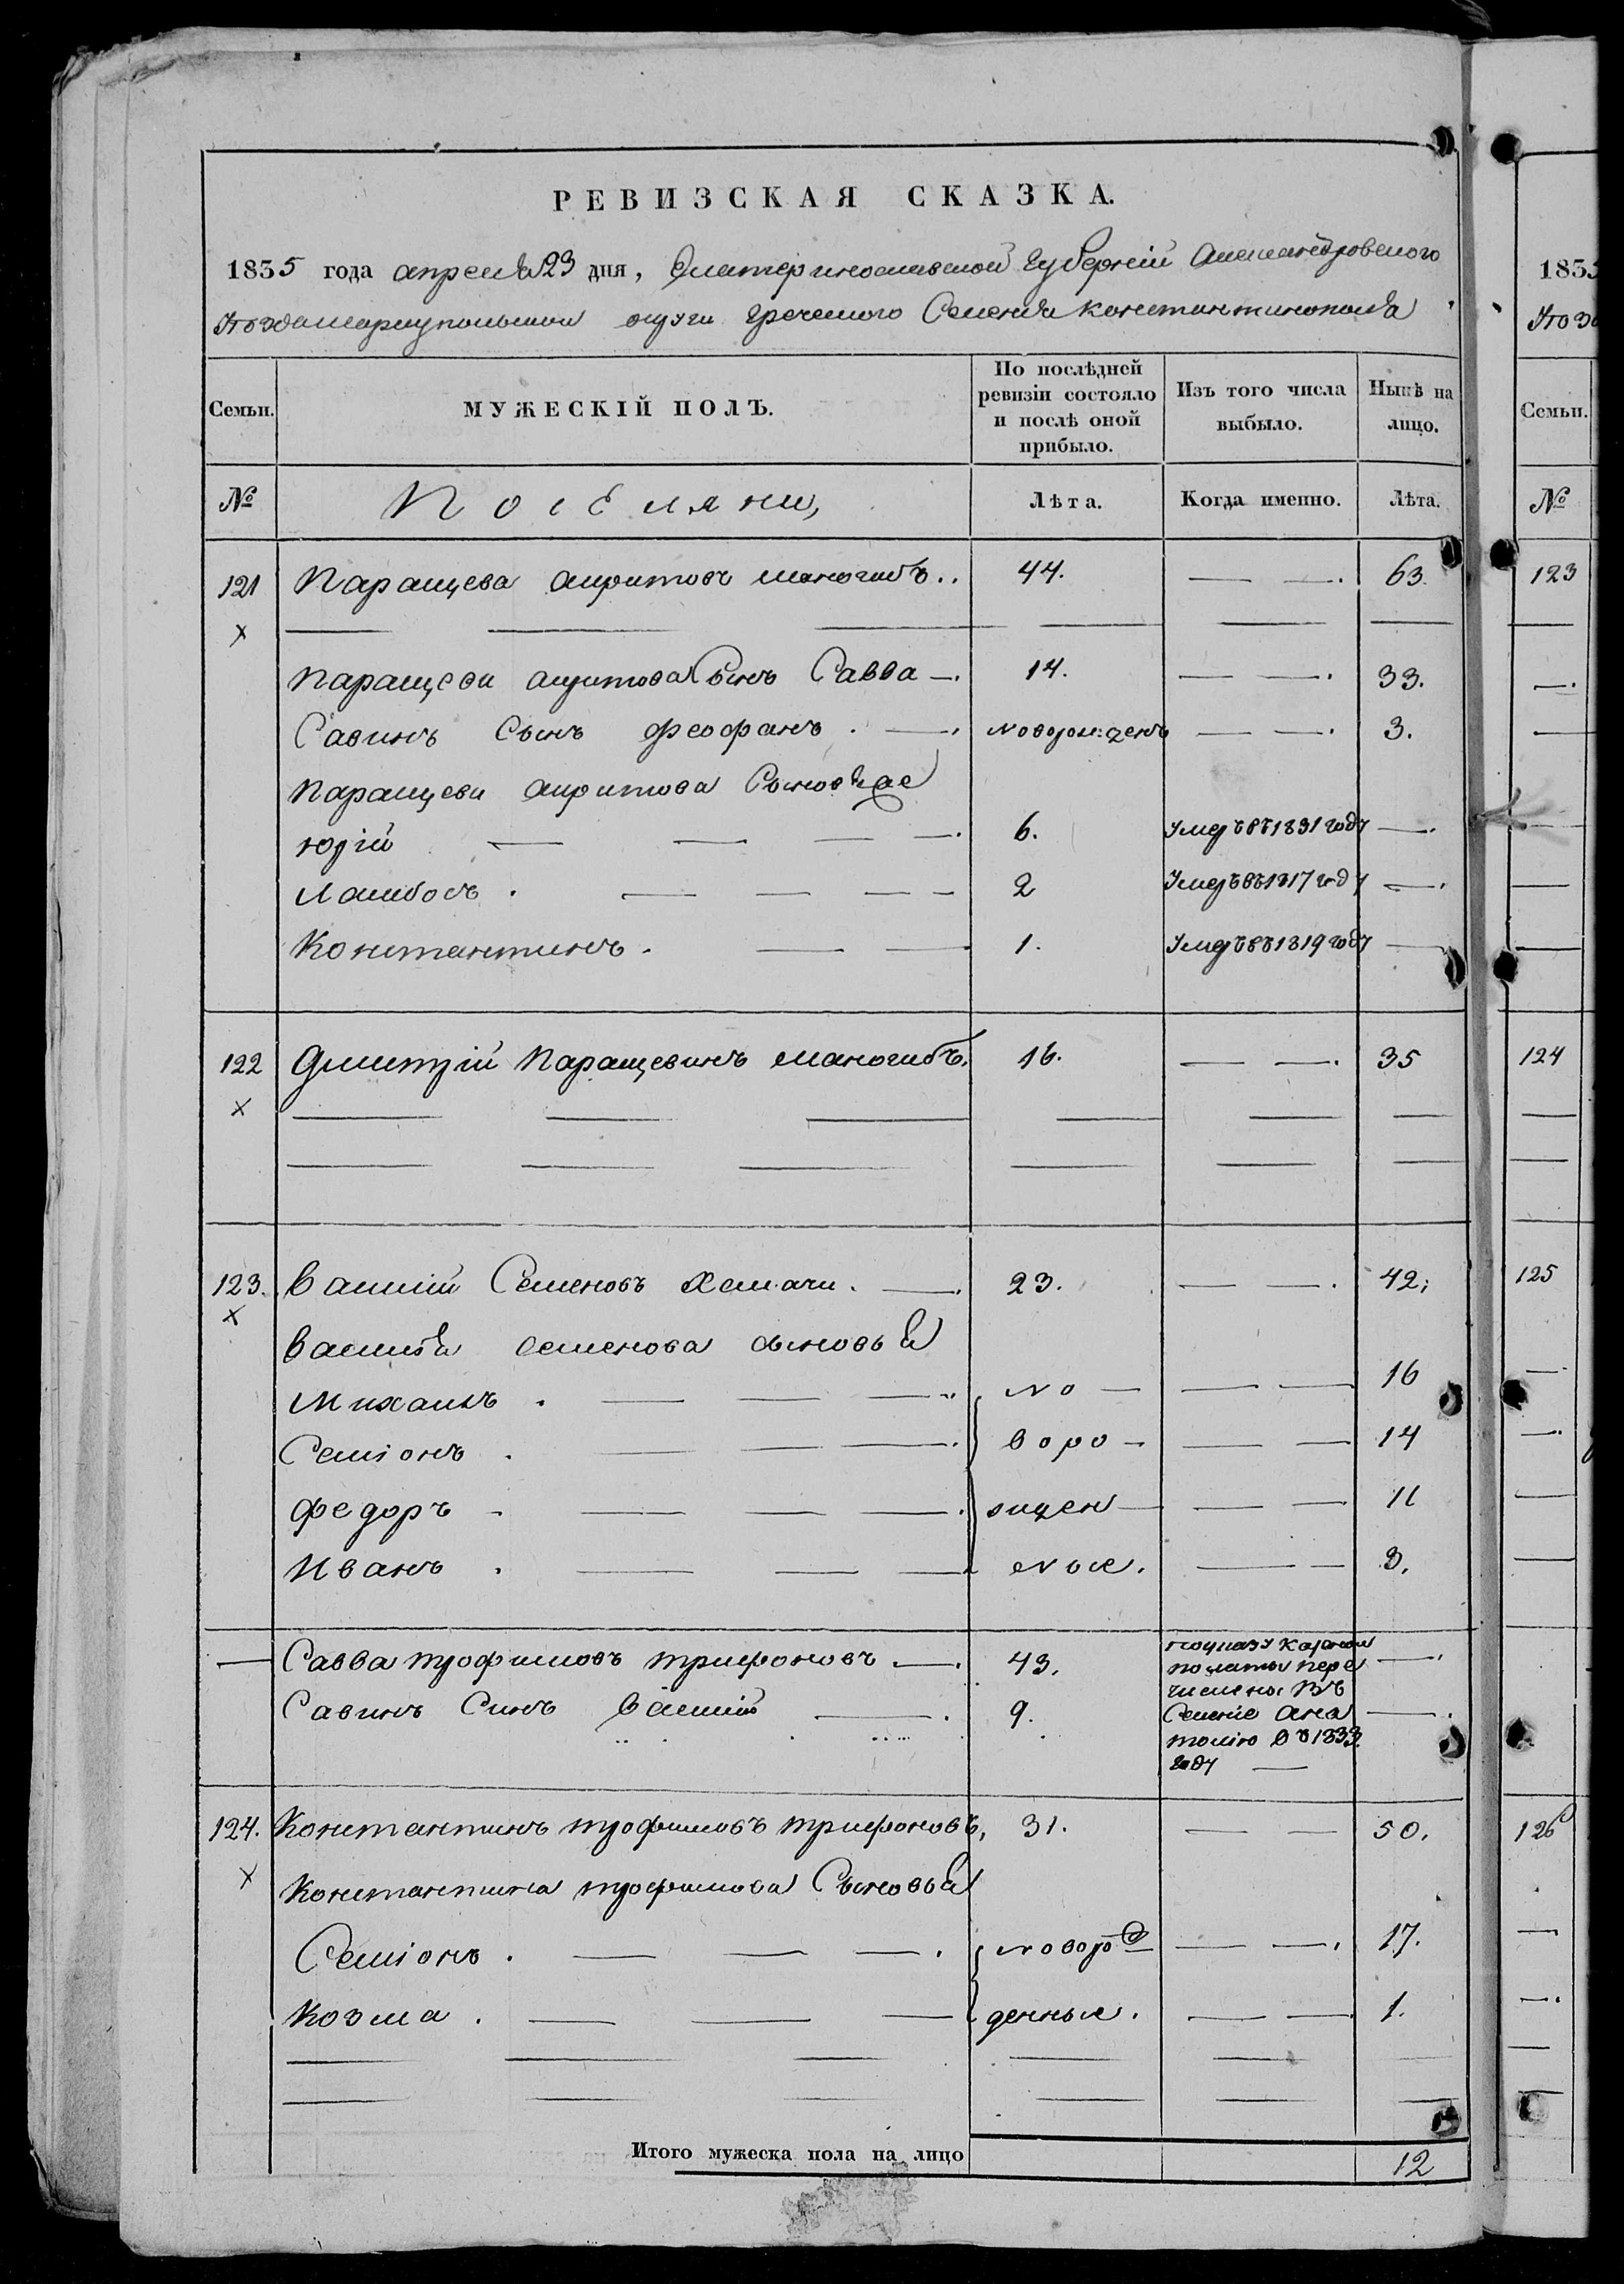 РЕВИЗСКАЯ СКАЗКА.
1835 года апреля 23 дня, Екатеринославской Губерніи Александровского
Уѣзда Маріупольской округи греческого Селенія Константинополя
Семьи. МУЖЕСКІЙ ПОЛЪ. По послѣдней ревизіи состояло и послѣ оной прибыло. Изъ того числа выбыло. Нынѣ на лицо.
№ Поселяни, Лѣта. Когда именно. Лѣта.
121 Паращева Маногиbъ.. 44. — —. 63.
х
Паращеви Сынъ Савва —. 14. — —. 33.
Савинъ Сынъ Феофанъ. —. новорожденъ — —. 3.
Паращеви Сыновья
Юрій 6. Умеръ въ 1831 году —.
2 Умеръ въ 1817 году —.
Константинъ. 1. Умеръ въ 1819 году —
122 Дмитрій Паращевинъ 16. — —. 35
х
123. Василій Семеновъ Хамачи. —. 23. — —. 42.
х
Василія Семенова сыновья
Михаилъ. но — — — 16
Семіонъ. воро — — — 14
Федоръ жден — — — 11
Иванъ. ные. — — 3.
— Савва Трофимовъ Трифоновъ —. 43. по указу Казенной —.
Савинъ Синъ Василій —. 9. полаты пере
числены въ
Селеніе Ана —.
толію въ 1833
году —
124. Константинъ Трофимовъ Трифоновъ, 31. — — 50.
х
Константина Трофимова Сыновья
Семіонъ. новорож — —. 17.
Козма. денные. — — 1.
Итого мужеска пола на лицо 12
1835
Уѣз
Семьи.
№
123
124
125
126